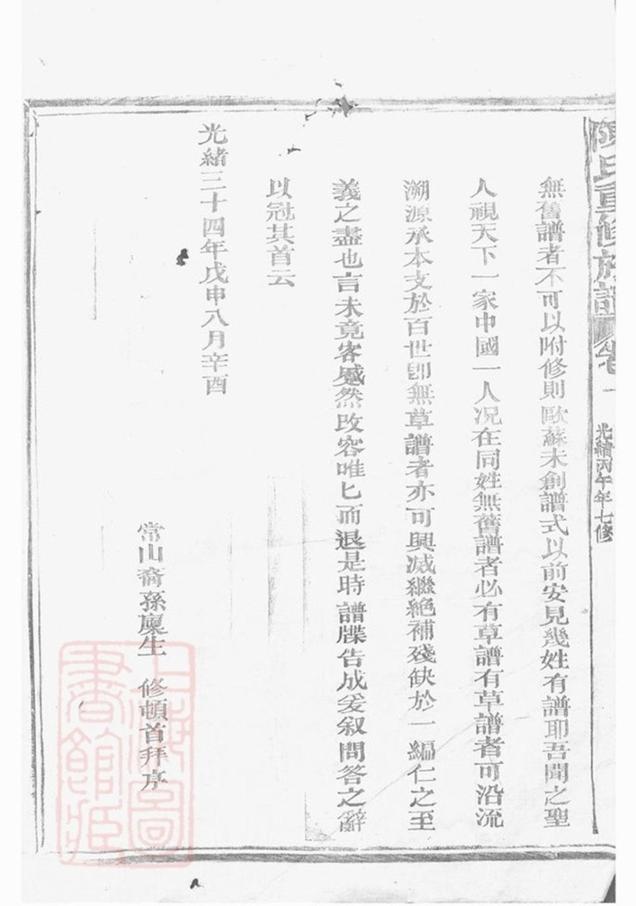 陳氏重修族譜
卷一
光緒丙午年七修
無舊譜者不可以附修則歐蘇未創譜式以前安見幾姓有譜耶吾聞之聖
人視天下一家中國一人况在同姓無舊譜者必有草譜有草譜者可沿流
溯源承本支於百世卽無草譜者亦可興滅繼絕補殘缺於一編仁之至
義之盡也言未竟客蹙然改容唯匕而退是時譜牒告成爰叙問答之辭
以冠其首云
光緒三十四年戊申八月辛酉
常山裔孫廩生 修頓首拜序
上海圖書館藏